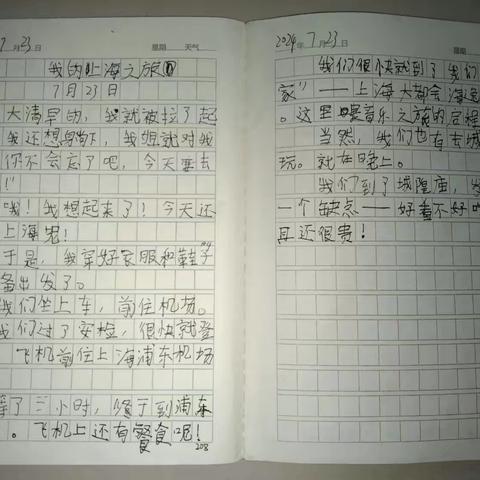 7月23日 星期 天气
我的上海之旅①
7月23日
大清早的,我就被拉了起
我还想身尚下,我姐就对我
你不会忘了吧,今天要去
!"
哦!我想起来了!今天还
上海呢!
于是,我穿好衣服和鞋子
备出发了。
我们坐上车,前住机场。
我们过了安检,很快就登
飞机前住上海浦东机场
等了三小时,终于到浦东
。飞机上还有餐食呢!
208
2024年7月23日 星期
我们很快就到了我们
家"——上海大都会海逸
。这里是音乐之旅的
当然,我们也有去城
玩。就在晚上。
我们到了城隍庙,发
一个缺点——好看不好吃
且还很贵!